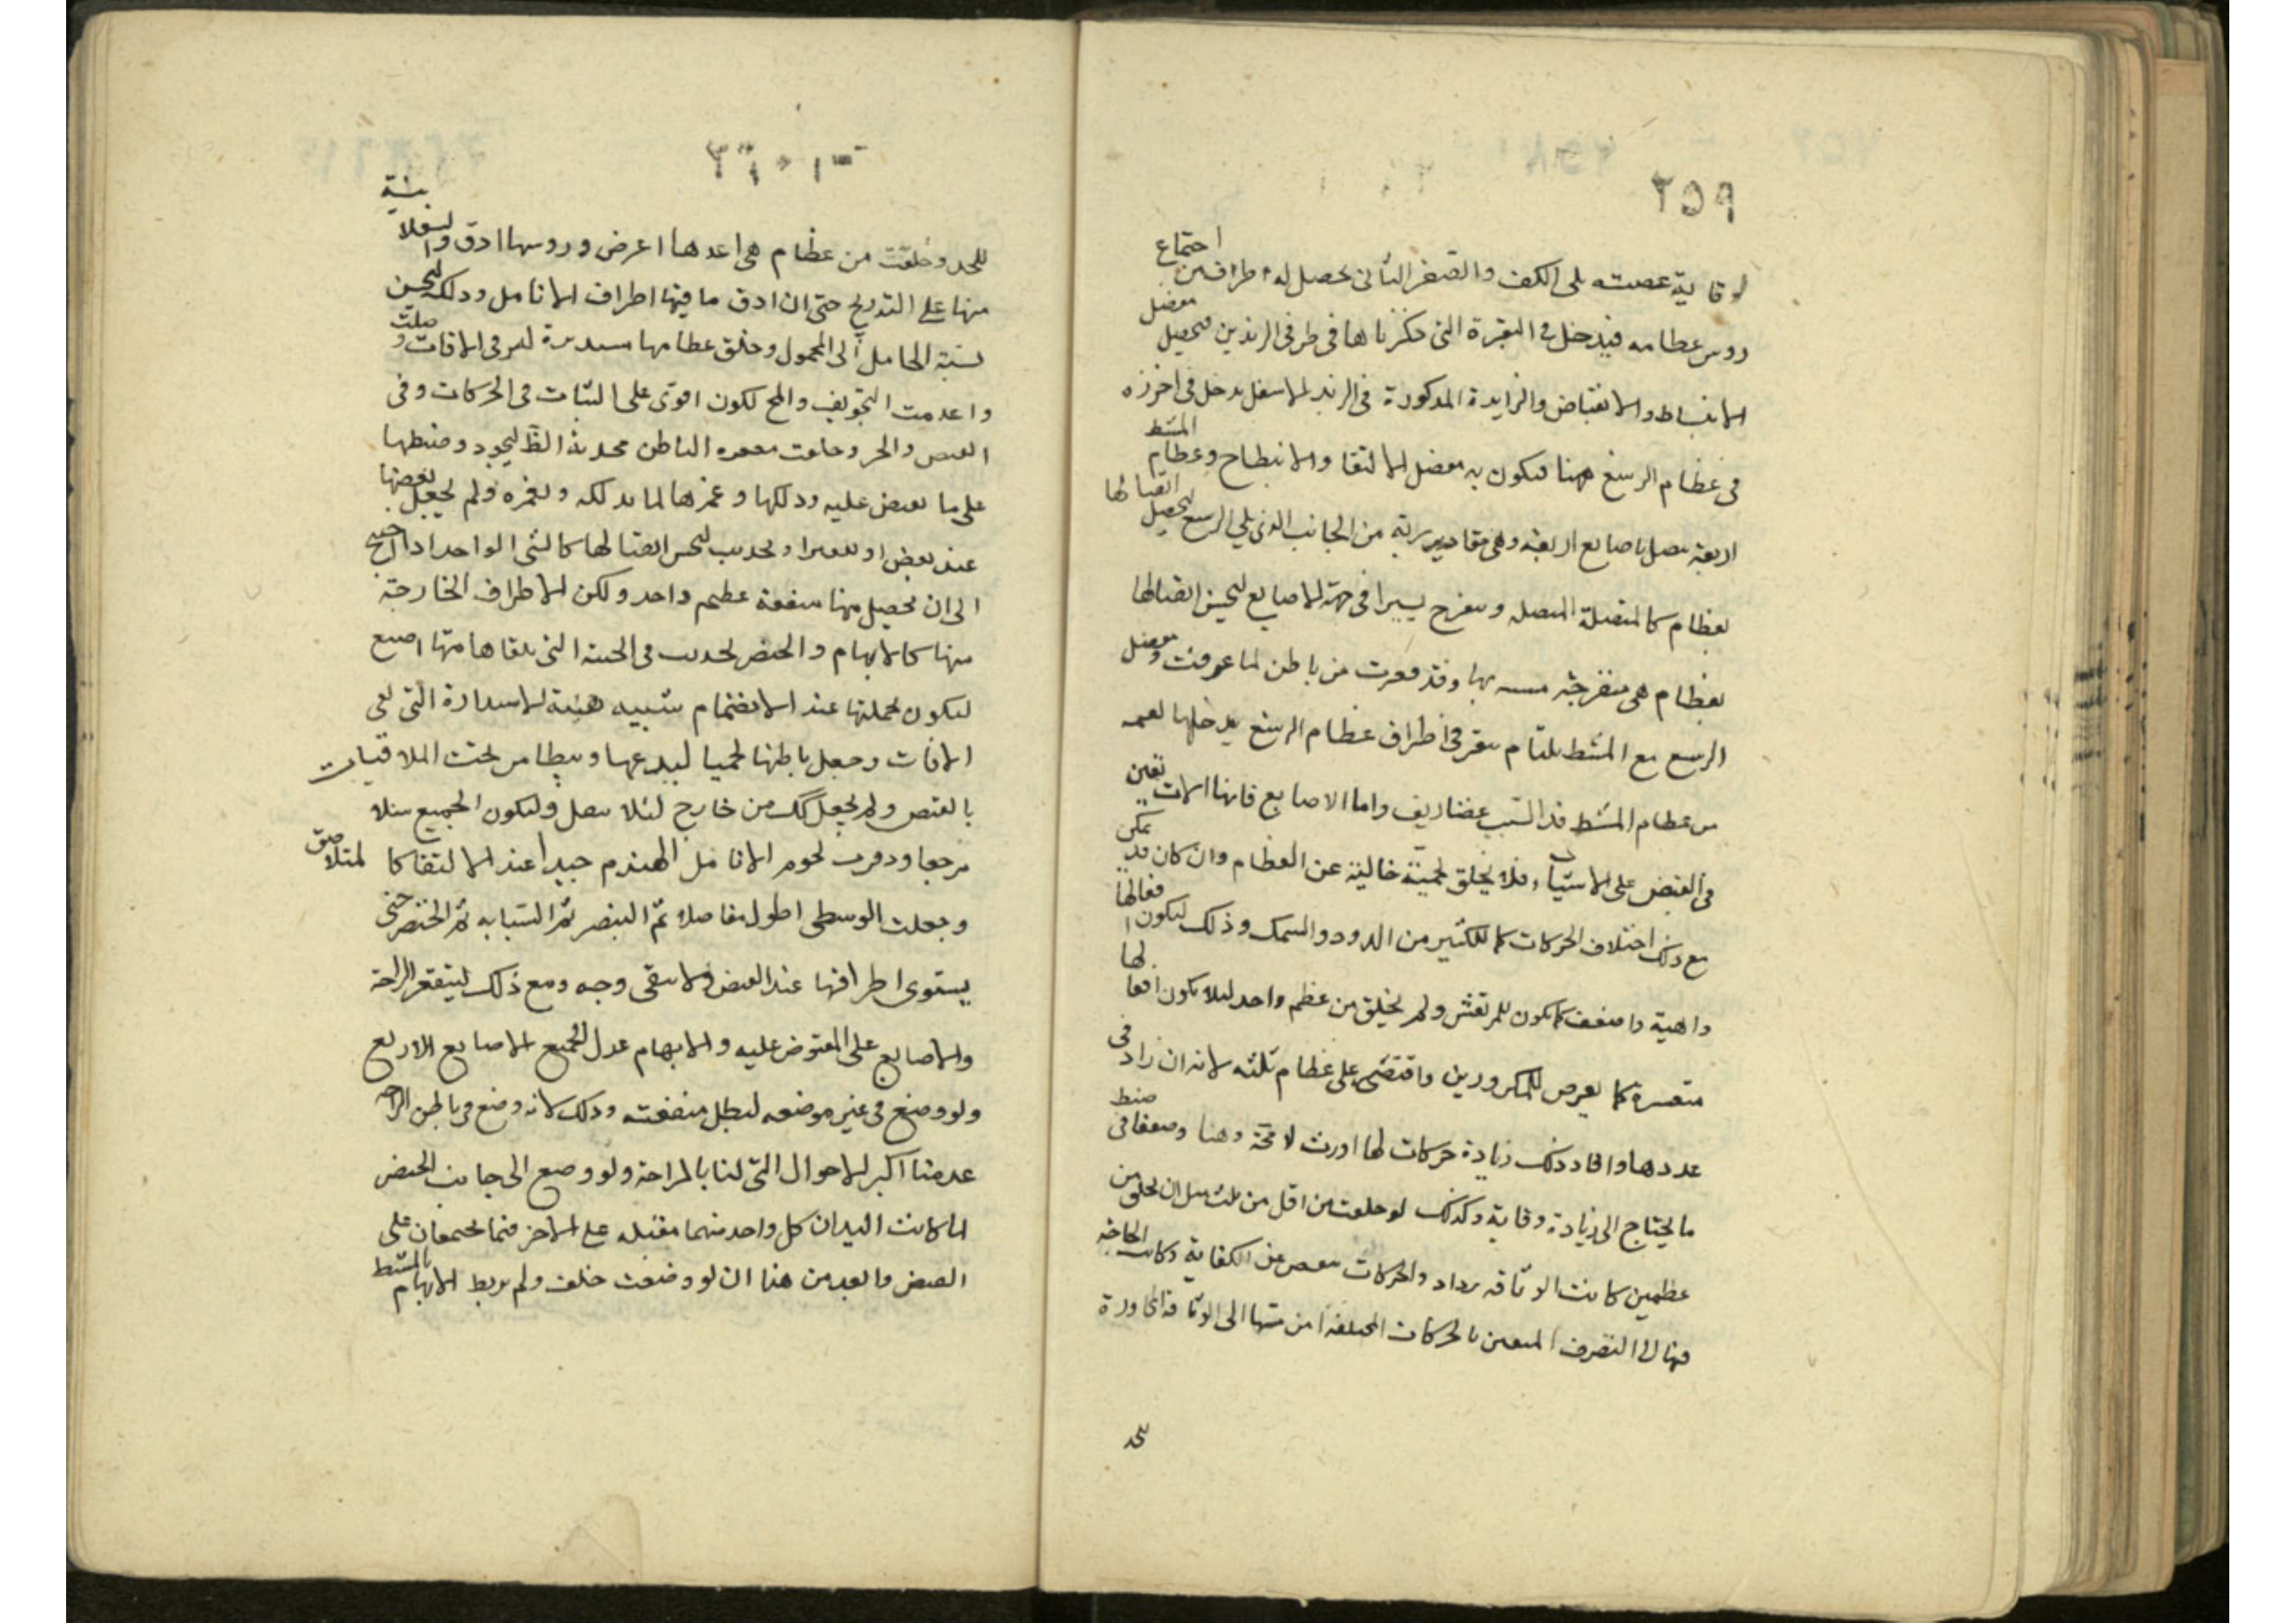 ٢٥٩
لوقاية عصبته على الكف والصغر الثانى يحصل له اطراف من اجتماع
روس عظامه فيدخل فى النقرة التى ذكرناها فى طرفى الزندين فيحصل مفصل
الانبساط والانقباض والزايدة المذكورة فى الزند الاسفل يدخل فى اخرزه
فى عظام الرسغ ههنا فيكون به مفصل الالتقا والانبطاح وعظام المشط
اربعة يتصل باصابع اربعة وهى متقاربة من الجانب الذى يلى الرسغ ليحصل اتصالها
بعظام كالمتصلة المتصله وينفرج يسيرا فى جهة الاصابع ليحسن اتصالها
بعظام هى منفرجة وقد قعرت من باطن لما عرفت ومفصل
الرسغ مع المشط يلتام بنقر فى اطراف عظام الرسغ يدخلها لقمه
من عظام المشط قد البست غضاريف واما الاصابع فانها الات تعين
فى القبض على الاشياء فلا يخلق لحمية خالية عن العظام وان كان قد يمكن
مع ذلك اختلاف الحركات كما للكثير من الدود والسمك وذلك ليكون افعالها
واهية واضعف كما يكون للمرتعش ولم يخلق من عظم واحد ليلا يكون افعالها
متعسرة كما يعرض للمكزوزين واقتصر على عظام ثلثه لانه ان زاد فى
عددها وافاد ذلك زيادة حركات لها اورث لا محة وهنا وضعفا فى ضبط
ما يحتاج الى زيادة وقاية وكذلك لو خلقت من اقل من ثلث مثل ان يخلق من
عظمين كانت الوثاقه يزداد والحركات ينقص عن الكفاية وكانت الحاجة
فيها الى التصرف المتعين بالحركات المختلفة امن منها الى الوثاقة المجاورة
للحد
٣٦٠
للحد وخلقت من عظام هى اعدها اعرض وروسها ادق والسفلانية
منها على التدريج حتى ان ادق ما فيها اطراف الانامل وذلك ليحسن
نسبة الحامل الى المحمول وخلق عظامها مستديرة ليوقى الافات وصلبت
واعدمت التجويف والمخ لكون اقوى على الثبات فى الحركات وفى
القبض والجر وخلقت مقعره الباطن محدبة الظ ليجود ضبطها
على ما يقبض عليه ودلكها وغمزها لما يدلكه ويغمزه ولم يجعل بعضها
عند بعض او تقعيرا وتحديب ليحسن اتصالها كالشى الواحد اذا احتيج
الى ان يحصل منها منفعة عظيم واحد ولكن الاطراف الخارجة
منها كالابهام والخنصر تحديب فى الجنبة التى يلقاها منها اصبع
ليكون لجملتها عند الانضمام شبيه هيئة الاستدارة التى تقى
الافات وجعل باطنها لحميا ليدعمها ويتطامن تحت الملاقيات
بالقبض ولم يجعل كك من خارج لئلا يثقل وليكون الجميع سلاحا
مرجعا ووفرت لحوم الانامل لتهندم جيدا عند الالتقا كالمتلاصق
وجعلت الوسطى اطول مفاصلا ثم البنصر ثم السبابه ثم الخنصر حتى
يستوى اطرافها عند القبض ولا يبقى وجه ومع ذلك ليتقعر الراحة
والاصابع على المقبوض عليه والابهام عدل لجميع الاصابع الاربع
ولو وضع فى غير موضعه لبطل منفعته وذلك لانه وضع فى باطن الراحه
عدمنا اكبر الاحوال التى لنا بالراحة ولو وضع الى جانب الخنصر
لما كانت اليدان كل واحد منهما مقبله على الاخر فيما يجتمعان على
القبض وابعد من هذا ان لو وضعت خلف ولم يربط الابهام بالمشط